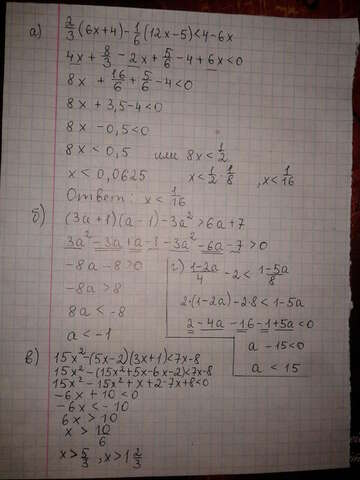 а) 2/3(6x+4)-1/6(12x-5)<4-6x
4x + 8/3 - 2x + 5/6 - 4 + 6x < 0
8x + 16/6 + 5/6 - 4 < 0
8x + 3,5 - 4 < 0
8x - 0,5 < 0
8x < 0,5 или 8x < 1/2
x < 0,0625 x < 1/2 · 1/8 , x < 1/16
Ответ: x < 1/16
б) (3a+1)(a-1)-3a² > 6a+7
3a² - 3a + a - 1 - 3a² - 6a - 7 > 0
-8a - 8 > 0
-8a > 8
8a < -8
a < -1
г) 1-2a/4 - 2 < 1-5a/8
2·(1-2a) - 2·8 < 1-5a
2 - 4a - 16 - 1 + 5a < 0
a - 15 < 0
a < 15
в) 15x² - (5x-2)(3x+1) < 7x-8
15x² - (15x² + 5x - 6x - 2) < 7x - 8
15x² - 15x² + x + 2 - 7x + 8 < 0
-6x + 10 < 0
-6x < -10
6x > 10
x > 10/6
x > 5/3 , x > 1 2/3